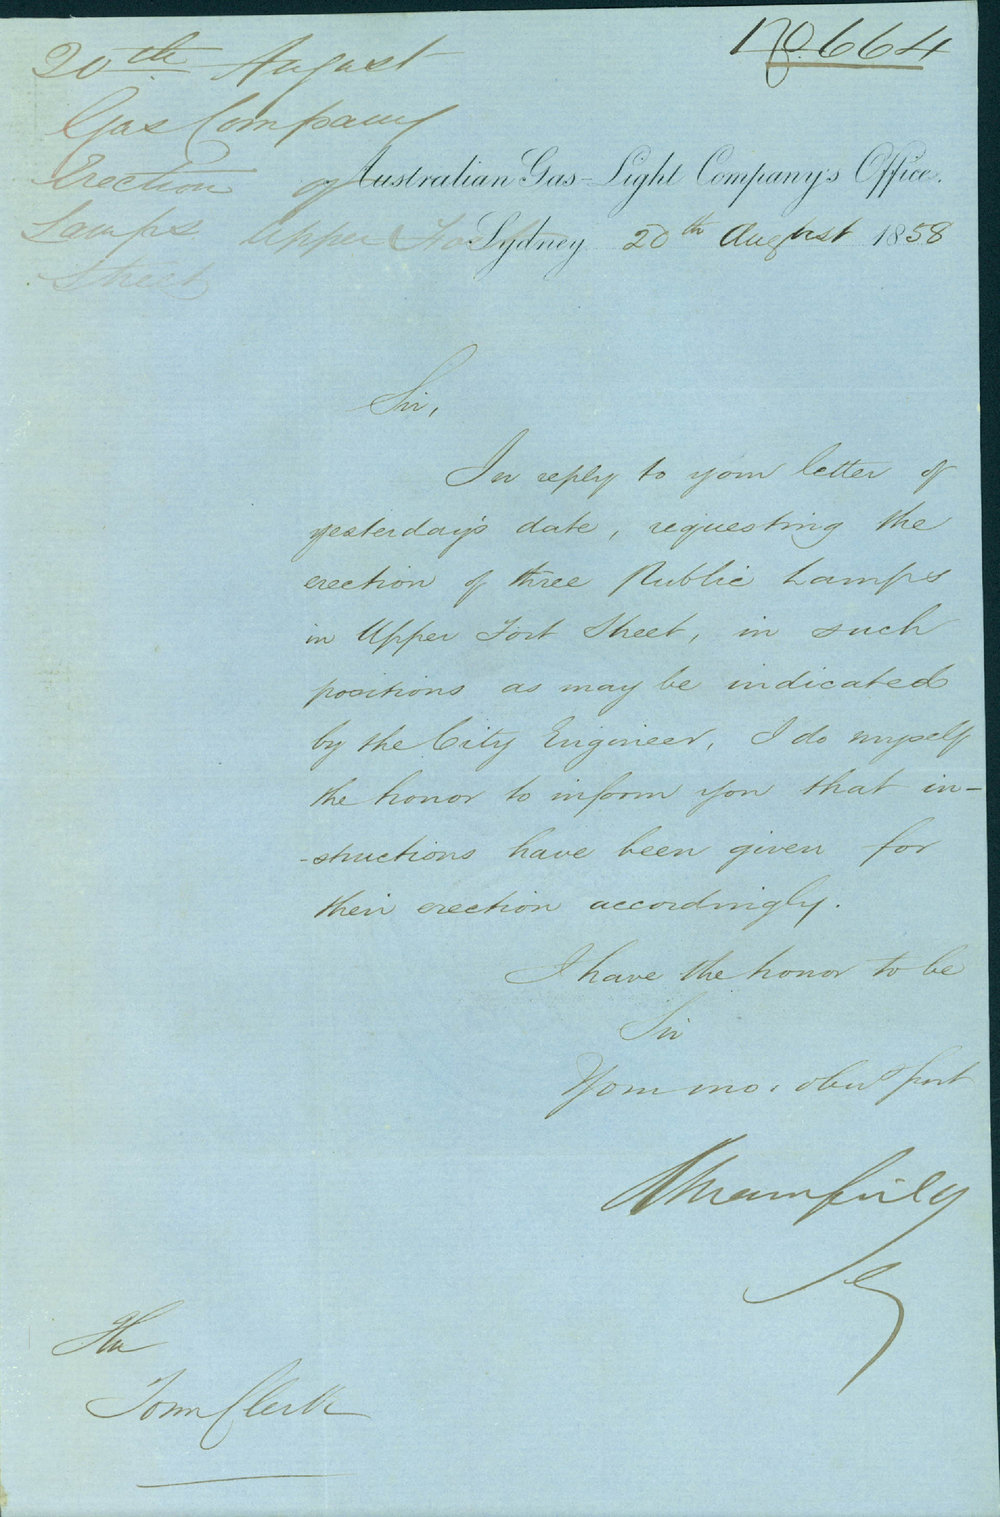 No. 664
20th August
Gas Company
Erection of
Lamps Upper Fort
Street
Australian Gas-Light Company's Office.
Sydney 20th August 1858
Sir,
In reply to your letter of
yesterday's date, requesting the
erection of three Public Lamps
in Upper Fort Street, in such
positions as may be indicated
by the City Engineer, I do myself
the honor to inform you that in-
-structions have been given for
their erection accordingly.
I have the honor to be
Sir
Your mo. obed
The
Town Clerk